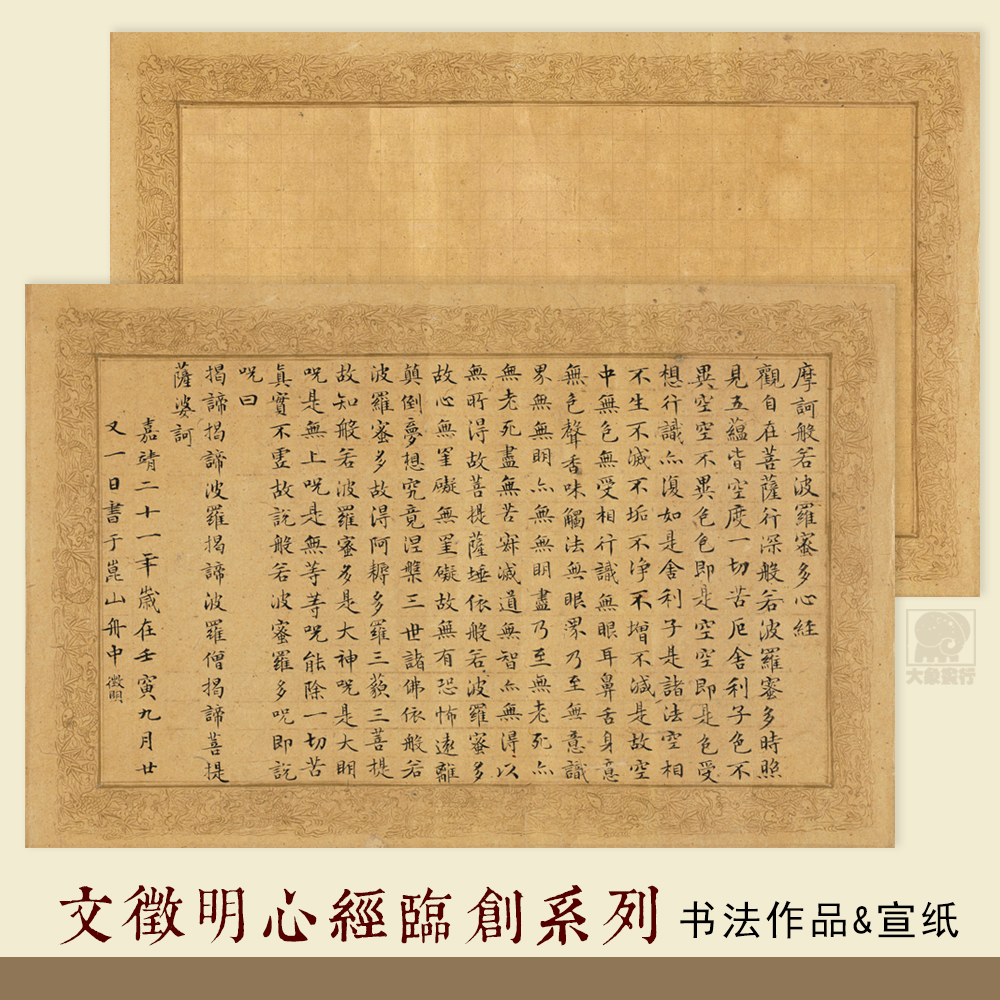 摩訶般若波羅蜜多心経
觀自在菩薩行深般若波羅蜜多時照
見五蘊皆空度一切苦厄舍利子色不
異空空不異色色即是空空即是色受
想行識亦復如是舍利子是諸法空相
不生不滅不垢不淨不增不減是故空
中無色無受相行識無眼耳鼻舌身意
無色聲香味觸法無眼界乃至無意識
界無無明亦無無明盡乃至無老死亦
無老死盡無苦寂滅道無智亦無得以
無所得故菩提薩埵依般若波羅蜜多
故心無罣礙無罣礙故無有恐怖遠離
顛倒夢想究竟涅槃三世諸佛依般若
波羅蜜多故得阿耨多羅三藐三菩提
故知般若波羅蜜多是大神呪是大明
呪是無上呪是無等等呪能除一切苦
真實不虛故說般若波蜜羅多呪即說
呪曰
揭諦揭諦波羅揭諦波羅僧揭諦菩提
薩婆訶
嘉靖二十一年歲在壬寅九月廿
又一日書于崑山舟中 徵明
大象發行
文徵明心經臨創系列 书法作品&宣纸